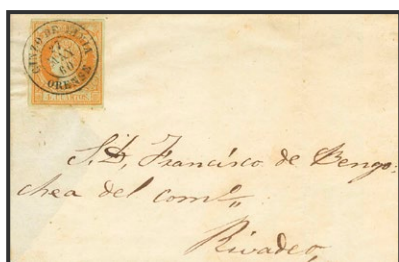 GINZO DE LIMIA
7
MAY
60
ORENSE
S.D. Francisco de Bengo-
chea del comº
Rivadeo,